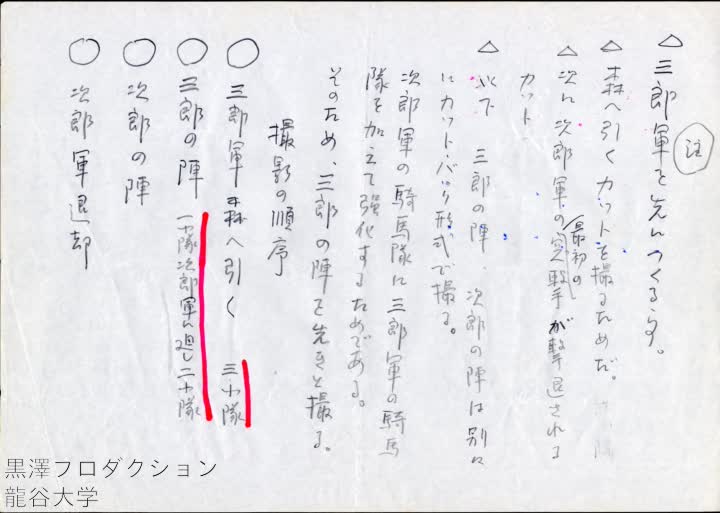 註
△三郎軍を先につくる事。
△森へ引くカットを撮るためだ。
△次に次郎軍の最初の突撃が撃退される
カット
△以下 三郎の陣、次郎の陣は別々
にカット・バック形式で撮る。
次郎軍の騎馬隊に三郎軍の騎馬
隊を加えて強化するためである。
そのため、三郎の陣を先きに撮る。
撮影の順序
○三郎軍森へ引く 三小隊
○三郎の陣 一小隊次郎軍に廻し二小隊
○次郎の陣
○次郎軍退却
黒澤プロダクション
龍谷大学